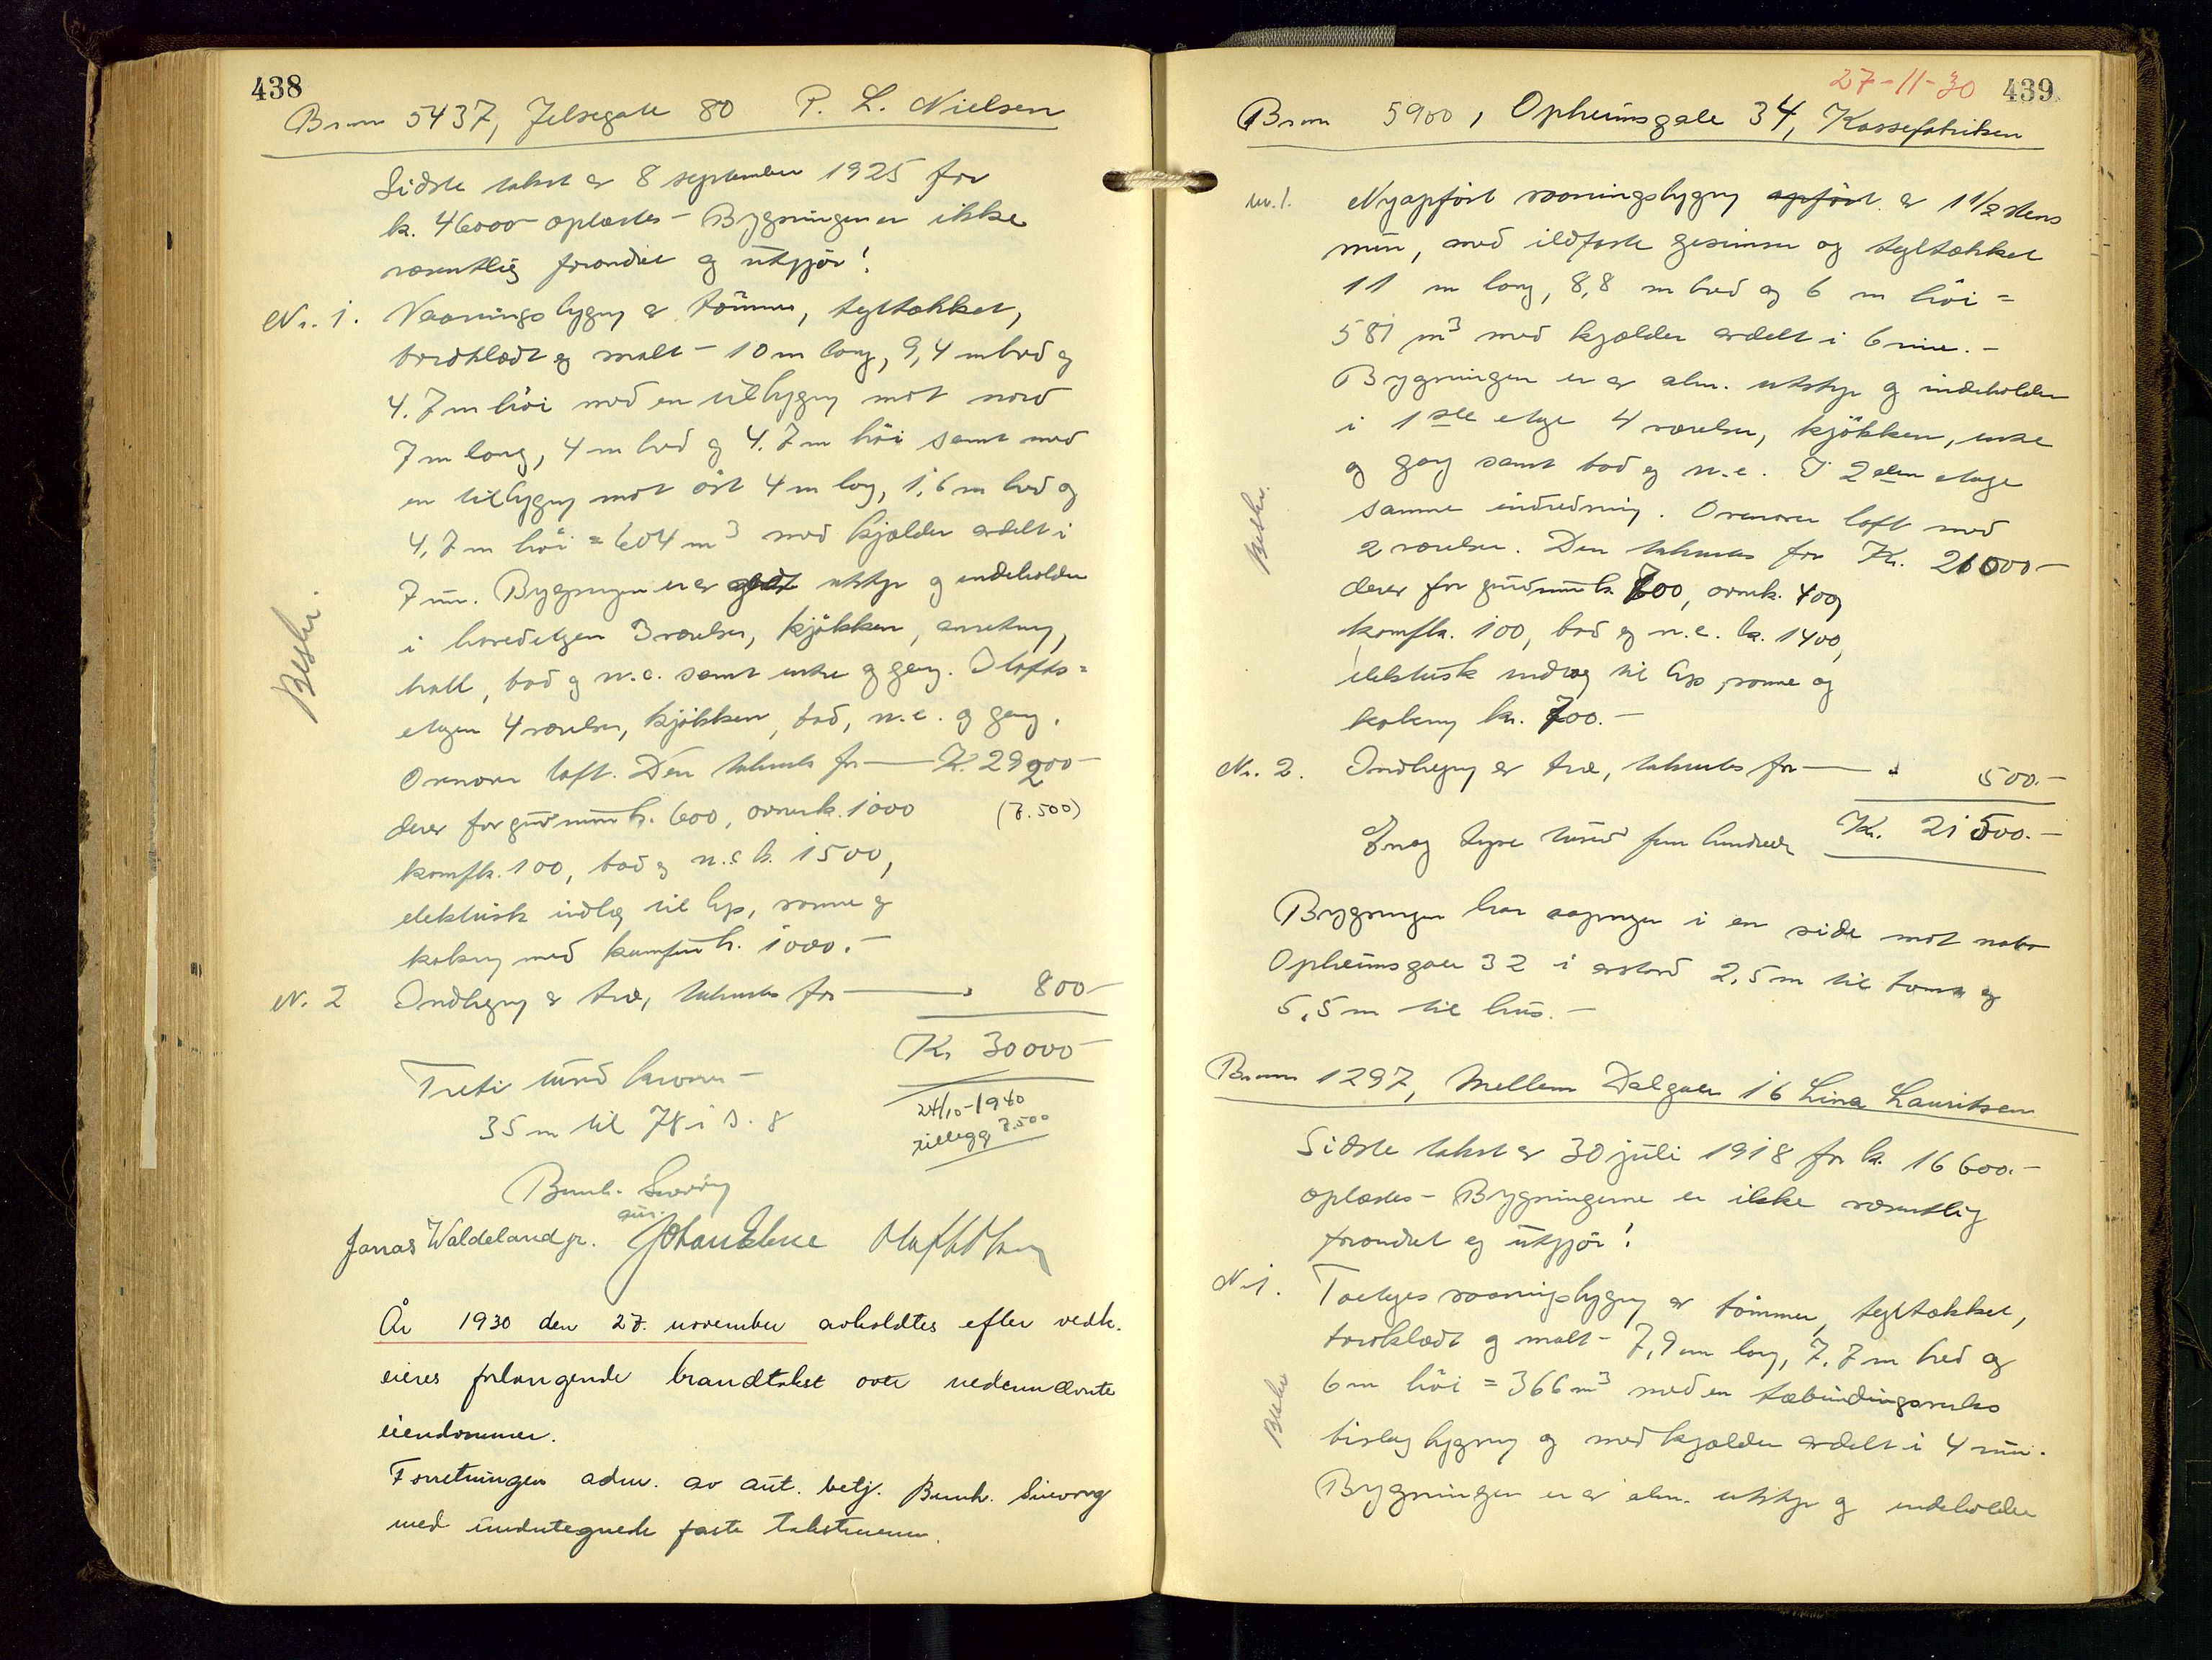 438
Brnm 5437, Jelsegate 80 P. L. Nielsen
Sidste takst av 8 september 1925 for
k. 46000 oplæstes - Bygningen er ikke
væsentlig forandret og utgjør:
Nr. 1. Vaaningsbygng av tømmer, tegltækket,
bordklædt og malt - 10 m lang, 9,4 m bred og
4.7 m høi med en tilbygng mot nord
7 m lang, 4 m bred og 4.7 m høi samt med
en tilbygng mot øst 4 m lang, 1,6 m bred og
4,7 m høi = 604 m3 med kjælder avdelt i
7 rum. Bygningen er av utstyr og indeholder
i hovedetagen 3 værelser, kjøkken, anretning,
hall, bad og w.c. samt entre og gang. I lofts=
etagen 4 værelser, kjøkken, bad, w.c. og gang.
Ovenover loft. Den takseres for — Kr. 29200 -
derav for grundmur k. 600, ovnerk. 1000 (7.500)
komfk. 100, bad og w.c k. 1500,
elektrisk indlæg til lys, varme og
kokning med komfur k. 1000. -
Beskr.
N. 2 Indhegng av træ, takseres for — " 800 -
Kr 30000 -
Tretti tusind kroner -
24/10-1940
tillegg 7.500
35 m til 78 i s. 8
Bernh. Sivørig
Jonas Waldeland jr.
År 1930 den 27. november avholdtes efter vedk.
eieres forlangende brandtakst over nedennævnte
eiendommer.
Forretningen adm. av aut. betj. Bernh. Sivørig
med undertegnede faste takstmenn.
27-11-30 439
Brnm 5900, Opheimsgate 34, Kassefabrikken
nr. 1. Nyopført vaaningsbygng opført av 1 1/2 stens
mur, med ildfaste gesimser og tegltækket
11 m lang, 8,8 m bred og 6 m høi =
581 m3 med kjælder avdelt i 6 rum. -
Bygningen er av alm. utstyr og indeholder
i 1ste etage 4 værelser, kjøkken, entre
og gang samt bad og w.c. I 2den etage
samme indredning. Ovenover loft med
2 værelser. Den takseres for Kr. 21000 -
derav for grundmur k. 700, ovnerk. 400,
komfk. 100, bad og w.c. k. 1400,
elektrisk indlæg til lys, varme og
kokning kr. 700. -
Beskr.
Nr. 2. Indhegng av træ, takseres for — " 500. -
Kr. 21500. -
En og tyve tusind fem hundrede
Bygningen har aapninger i en side mot nabo
Opheimsgaten 32 i avstand 2,5 m til tomt og
5,5 m til hus. -
Brnm 1297, Mellem Dalgaten 16 Lina Lauritsen
Sidste takst av 30 juli 1918 for k. 16600. -
oplæstes - Bygningerne er ikke væsentlig
forandret og utgjør:
N 1. Toetages vaaningsbygng av tømmer, tegltækket,
bordklædt og malt - 7,9 m lang, 7,7 m bred og
6 m høi = 366 m3 med en tækbindingsverks
bislagbygng og med kjælder avdelt i 4 rum.
Bygningen er av alm. utstyr og indeholder
Beskr